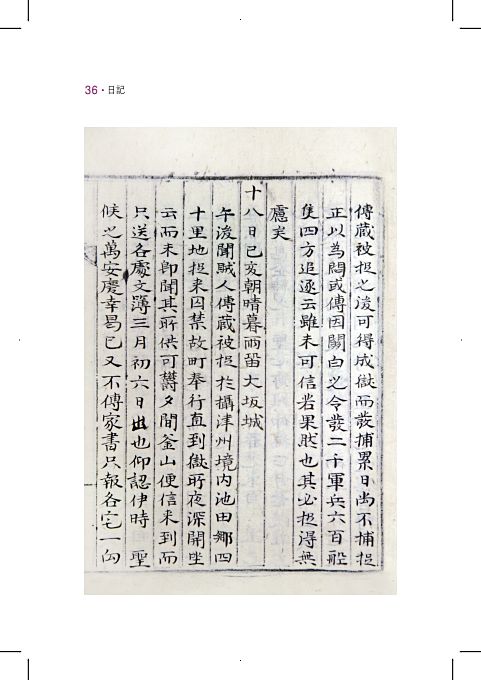 36 · 日記
傳藏被捉之後可得成獄而發捕累日尚不捕捉
正以為悶或傳因關白之令發二千軍兵六百船
隻四方追逐云雖未可信若果然也其必捉得無
慮矣
十八日己亥朝晴暮雨留大坂城
午後聞賊人傳藏被捉於攝津州境內池田鄉四
十里地捉來囚禁故町奉行直到獄所夜深開坐
云而未卽聞其所供可鬱夕間釜山便信來到而
只送各處文簿三月初六日出也仰認伊時 聖
候之萬安慶幸曷已又不傳家書只報各宅一向